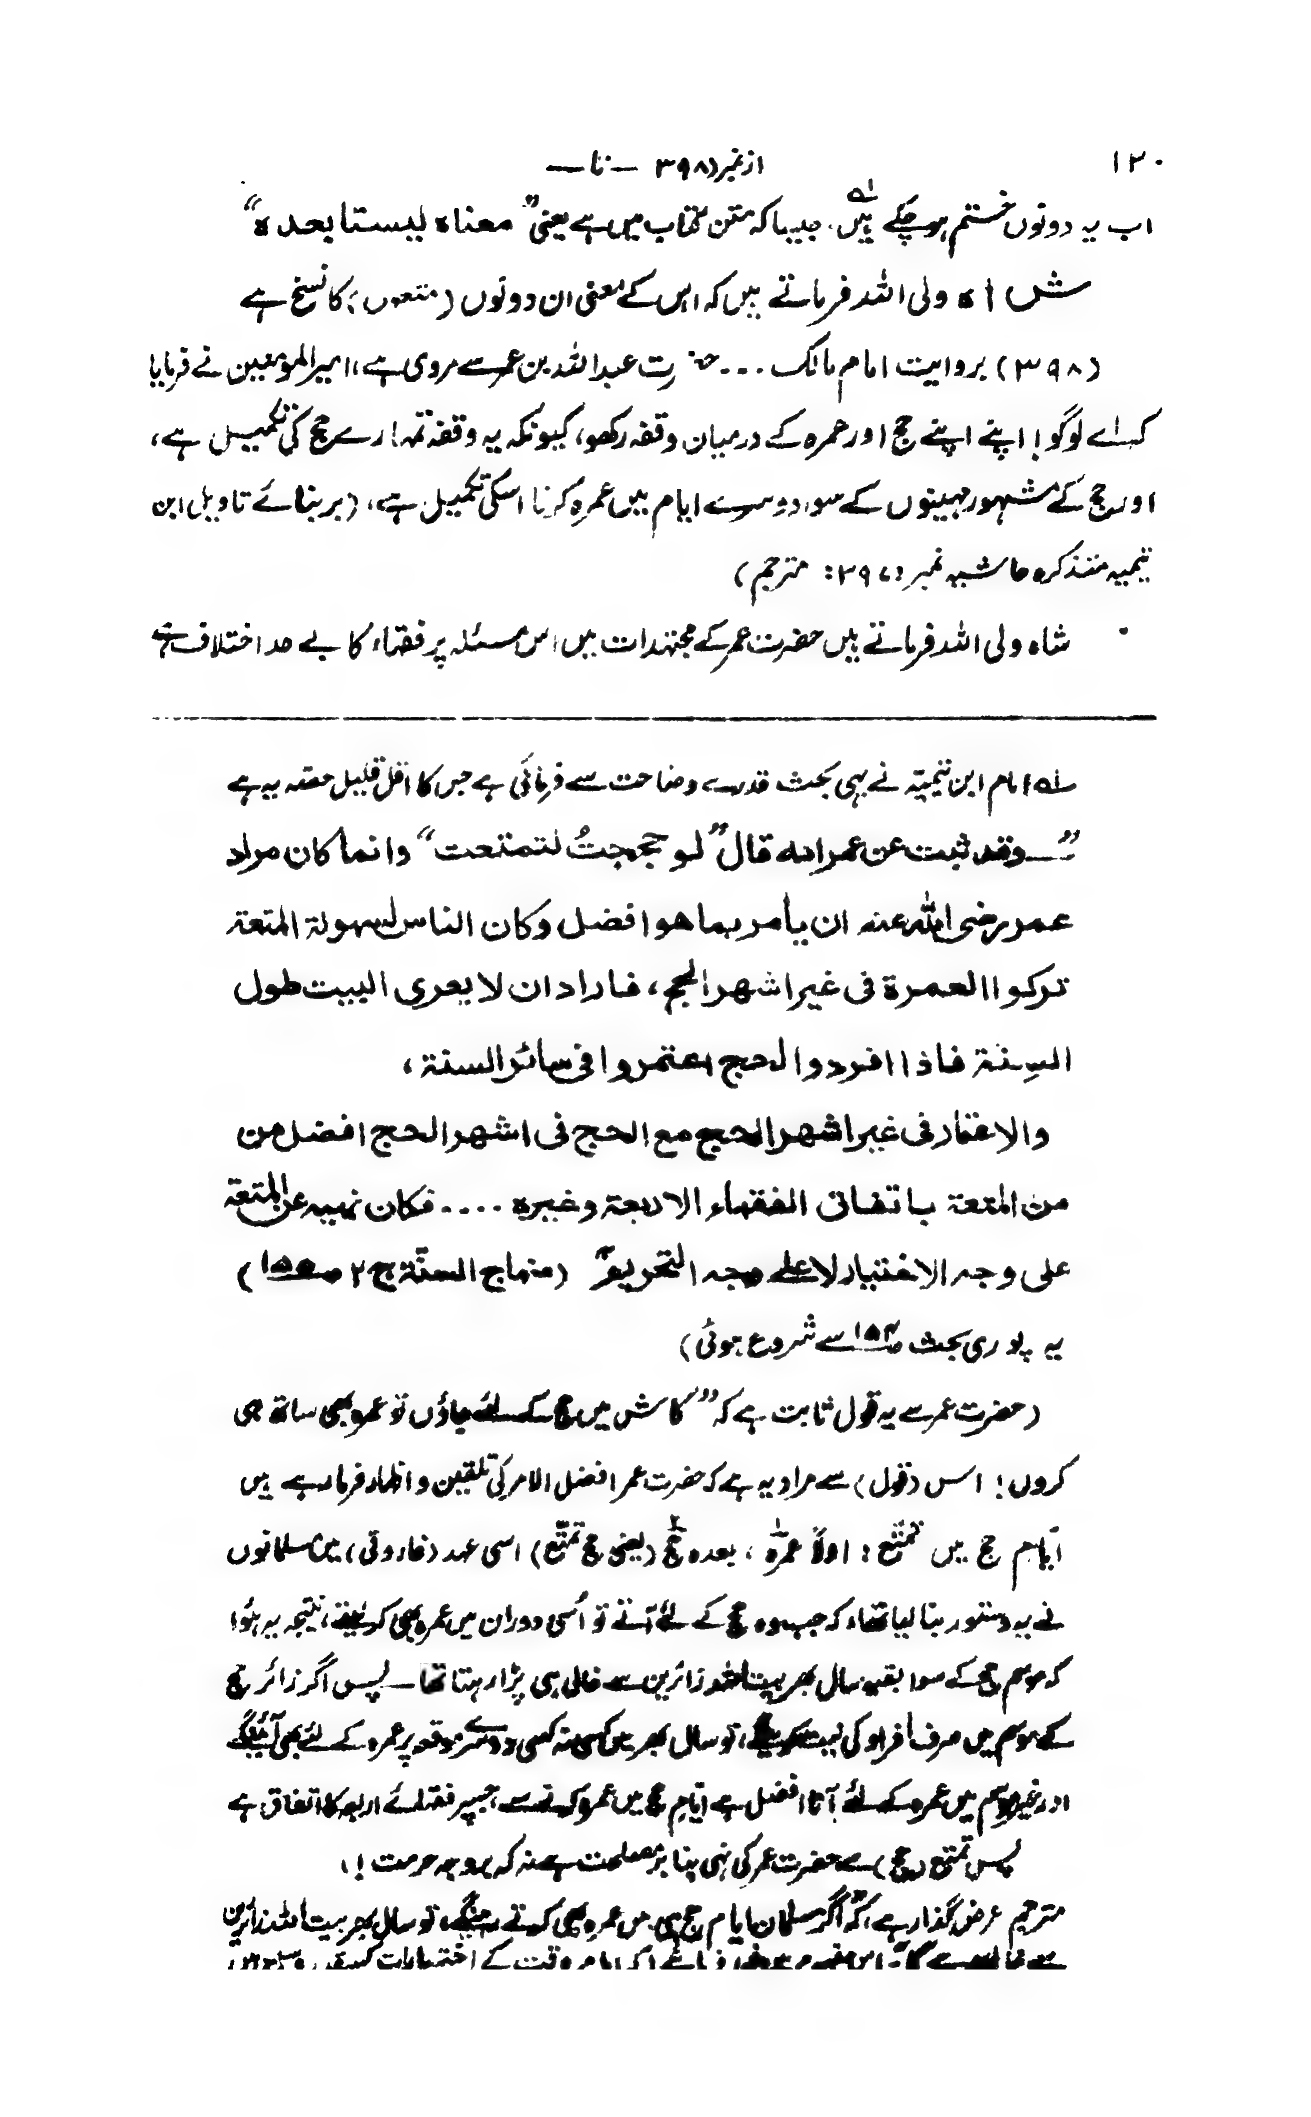 ۱۲۰ از نمبر (۳۹۸ – تا —
اب یہ دونوں ختم ہو چکے ہیں۔ جیسا کہ متن کتاب میں ہے یعنی ”معناہ لیستا بعدہ“
شاہ ولی اللہ فرماتے ہیں کہ اس کے معنی ان دونوں (متعوں) کا نسخ ہے
(۳۹۸) بروایت امام مالک ... حضرت عبداللہ بن عمر سے مروی ہے، امیر المومنین نے فرمایا
کہ اے لوگو! اپنے اپنے حج اور عمرہ کے درمیان وقفہ رکھو، کیونکہ یہ وقفہ تمہارے حج کی تکمیل ہے،
اور حج کے مشہور مہینوں کے سوا دوسرے ایام میں عمرہ کرنا اسکی تکمیل ہے، (بر بنائے تاویل ابن
تیمیہ متذکرہ حاشیہ نمبر ۳۹۷: مترجم)
شاہ ولی اللہ فرماتے ہیں حضرت عمر کے مجتہدات میں اس مسئلہ پر فقہاء کا بے حد اختلاف ہے
۱ہ امام ابن تیمیہؒ نے یہی بحث قدرے وضاحت سے فرمائی ہے جس کا اقل قلیل حصہ یہ ہے
”— وقد ثبت عن عمر انہ قال ”لو حججتُ لتمتعت“ وانما کان مراد
عمر رضی اللہ عنہ ان یأمر بما ھو افضل وکان الناس لسھولۃ المتعۃ
ترکوا العمرۃ فی غیر اشھر الحج، فاراد ان لا یعری البیت طول
السنۃ فاذا افردوا الحج اعتمروا فی سائر السنۃ،
والاعتمار فی غیر اشھر الحج مع الحج فی اشھر الحج افضل من
من المتعۃ باتفاق الفقھاء الاربعۃ وغیرہ .... فکان نھیہ عن المتعۃ
علی وجہ الاختیار لا علی وجہ التحریم“ (منہاج السنّۃ ج ۲ صـ ۱۵۵)
یہ پوری بحث صـ ۱۵۴ سے شروع ہوئی)
(حضرت عمر سے یہ قول ثابت ہے کہ ”کاش میں حج کے لئے جاؤں تو عمرہ بھی ساتھ ہی
کروں! اس (قول) سے مراد یہ ہے کہ حضرت عمر افضل الامر کی تلقین و اظہار فرما رہے ہیں
ایّام حج میں تمتّع: اولاً عمرہ، بعدہ حج (یعنی حج تمتّع) اسی عہد (فاروقی) میں مسلمانوں
نے یہ دستور بنا لیا تھا کہ جب وہ حج کے لئے آتے تو اُسی دوران میں عمرہ بھی کر لیتے، نتیجہ یہ ہُوا
کہ موسم حج کے سوا بقیہ سال بھر بیت اللہ زائرین سے خالی ہی پڑا رہتا تھا — پس اگر زائر حج
کے موسم میں صرف افراد کی نیت کریں گے، تو سال بھر میں کسی نہ کسی دوسرے موقعہ پر عمرہ کے لئے بھی آئینگے
اور غیر موسم میں عمرہ کے لئے آنا افضل ہے ایّام حج میں عمرہ کرنے سے، جسپر فقہائے اربعہ کا اتفاق ہے
پس تمتع (حج) سے حضرت عمر کی نہی بنا بر مصلحت ہے نہ کہ بوجہ حرمت!،
مترجم عرض گذار ہے، کہ اگر مسلمان ایام حج ہی میں عمرہ بھی کرتے رہینگے، تو سال بھر بیت اللہ زائرین